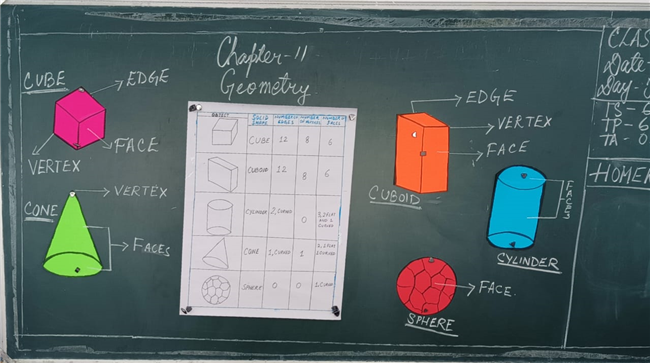 Chapter-11
Geometry
CUBE
EDGE
FACE
VERTEX
VERTEX
CONE
FACES
OBJECT
SOLID
NUMBER OF
EDGES
NUMBER
NUMBER
FACES
CUBE 12 8 6
CUBOID 12 8 6
CYLINDER 2, CURVED 0 3, 2 FLAT
AND 1
CURVED
CONE 1, CURVED 1 2, 1 FLAT
1 CURVED
SPHERE 0 0 1 CURVED
EDGE
VERTEX
FACE
CUBOID
FACES
CYLINDER
FACE.
SPHERE
CLAS
Date-
Day-
TS-6
TP-6
TA-0
HOMEW